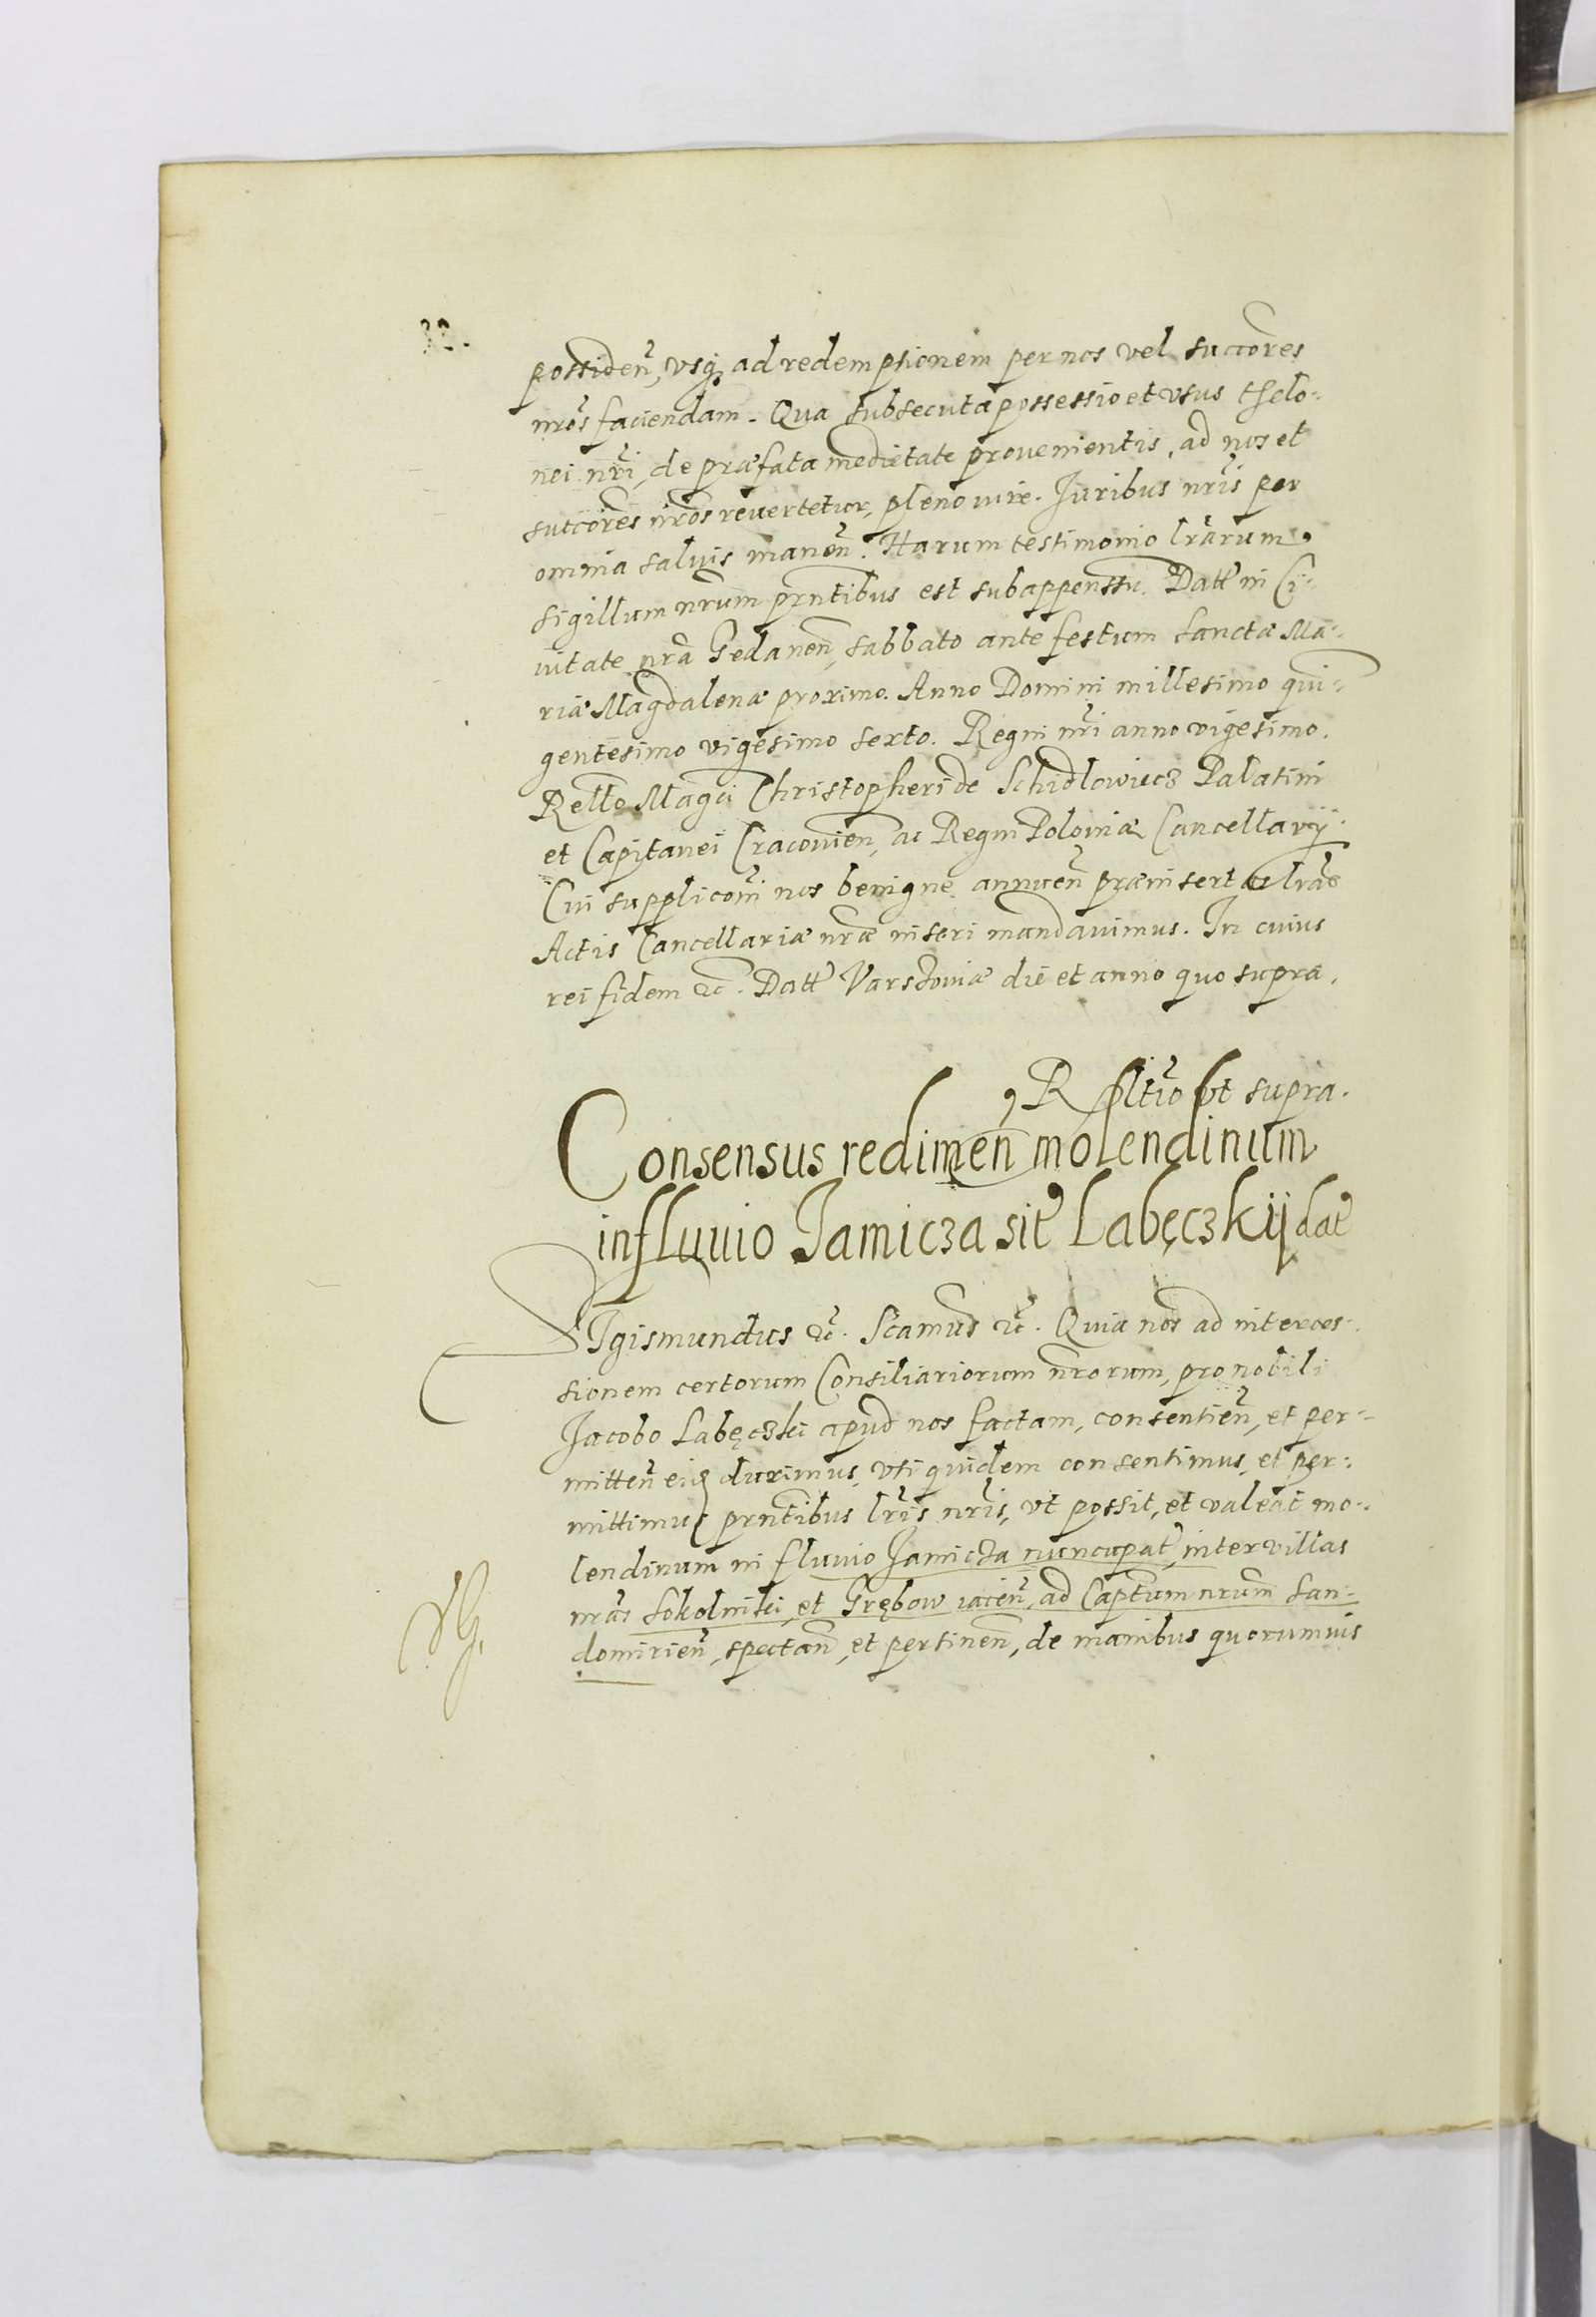 32.
possiden̄, vsq̨ ad redemptionem per nos vel succōres
nrōs faciendam. Qua subsecuta possessio et vsus thelo-
nei nrī, de præfata medietate prouenientis, ad nos et
succōres nrōs reuertetur, pleno iure. Iuribus nrīs per
omnia saluis manen̄. Harum testimonio lrārum,
sigillum nrūm prntībus est subappenssū. Datt in Ci-
uitate nrā Gedanen̄, sabbato ante festum sanctæ Ma-
riæ Magdalenæ proximo. Anno Domini millesimo quin-
gentesimo vigesimo sexto. Regni nrī anno vigesimo.
Rellō Magcī Christopheri de Schidlowiecz Palatini
et Capitanei Cracouien̄, ac Regni Poloniæ Cancellarij.
Cui supplicōni nos benigne annuen̄ præinsertas lrās
Actis Cancellariæ nrǣ inseri mandauimus. In cuius
rei fidem &c. Datt Varssouiæ die et anno quo supra.
R ltīo vt supra.
Consensus redimen̄ molendinum
in fluuio Jamicza sit Labęczkij dat
SIgismundus &c. Scāmus &c. Quia nos ad interces-
sionem certorum Consiliariorum nrōrum, pro nobili
Jacobo Labęczki apud nos factam, consentien̄, et per-
mitten̄ eiq̨ duximus, vti quidem consentimus, et per-
mittimus prntībus lrīs nrīs, vt possit, et valeat mo-
lendinum in fluuio Jamicza nuncupat, inter villas
nrās Sokolniki, et Grębow iacen̄, ad Captūm nrūm San-
domirien̄, spectan̄, et pertinen̄, de manibus quorumuis